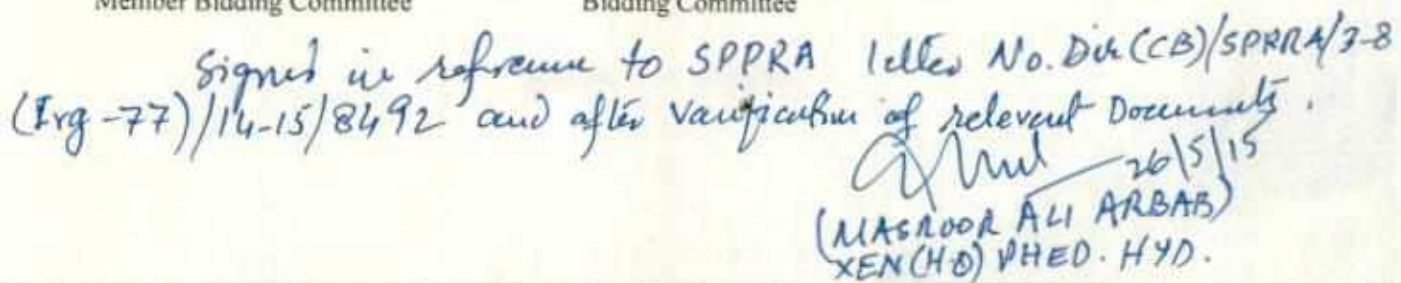 Member Bidding Committee Bidding Committee
Signed in reference to SPPRA letter No. Dir (CB)/SPRRA/3-8
(Irg-77)/14-15/8492 and after varification of relevent Documents.
26/5/15
(MASROOR ALI ARBAB)
XEN (H.Q) PHED. HYD.